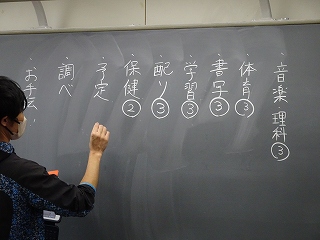 ・音楽 理科③
・体育③
・書写③
・学習③
・配り③
・保健②
・予定
・調べ
・お手伝い